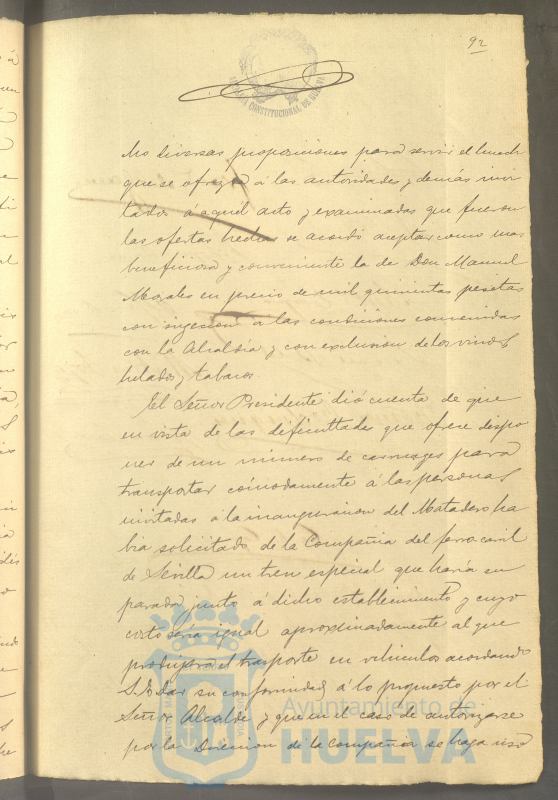 92
ALCALDIA CONSTITUCIONAL DE HUELVA
do diversas proposiciones para servir el lunch
que se ofrezca á las autoridades y demás invi
tados á aquél acto y examinadas que fueron
las ofertas hechas se acordó aceptar como mas
beneficiosa y conveniente la de Don Manuel
Morales en precio de mil quinientas pesetas
con sujecion á las condiciones convenidas
con la Alcaldia y con exclusion de los vinos
helados y tabacos.
El Señor Presidente dió cuenta de que
en vista de las dificultades que ofrece dispo
ner de un número de carruages para
transportar cómodamente á las personas
invitadas á la inauguracion del Matadero ha
bia solicitado de la Compañia del ferro carril
de Sevilla un tren especial que haria su
parada junto á dicho establecimiento y cuyo
costo seria igual aproximadamente al que
produjera el trasporte en vehiculos acordando
S. E. dar su conformidad á lo propuesto por el
Señor Alcalde y que en el caso de autorizarse
por la Direccion de la Compañia se haga uso
Ayuntamiento de
HUELVA